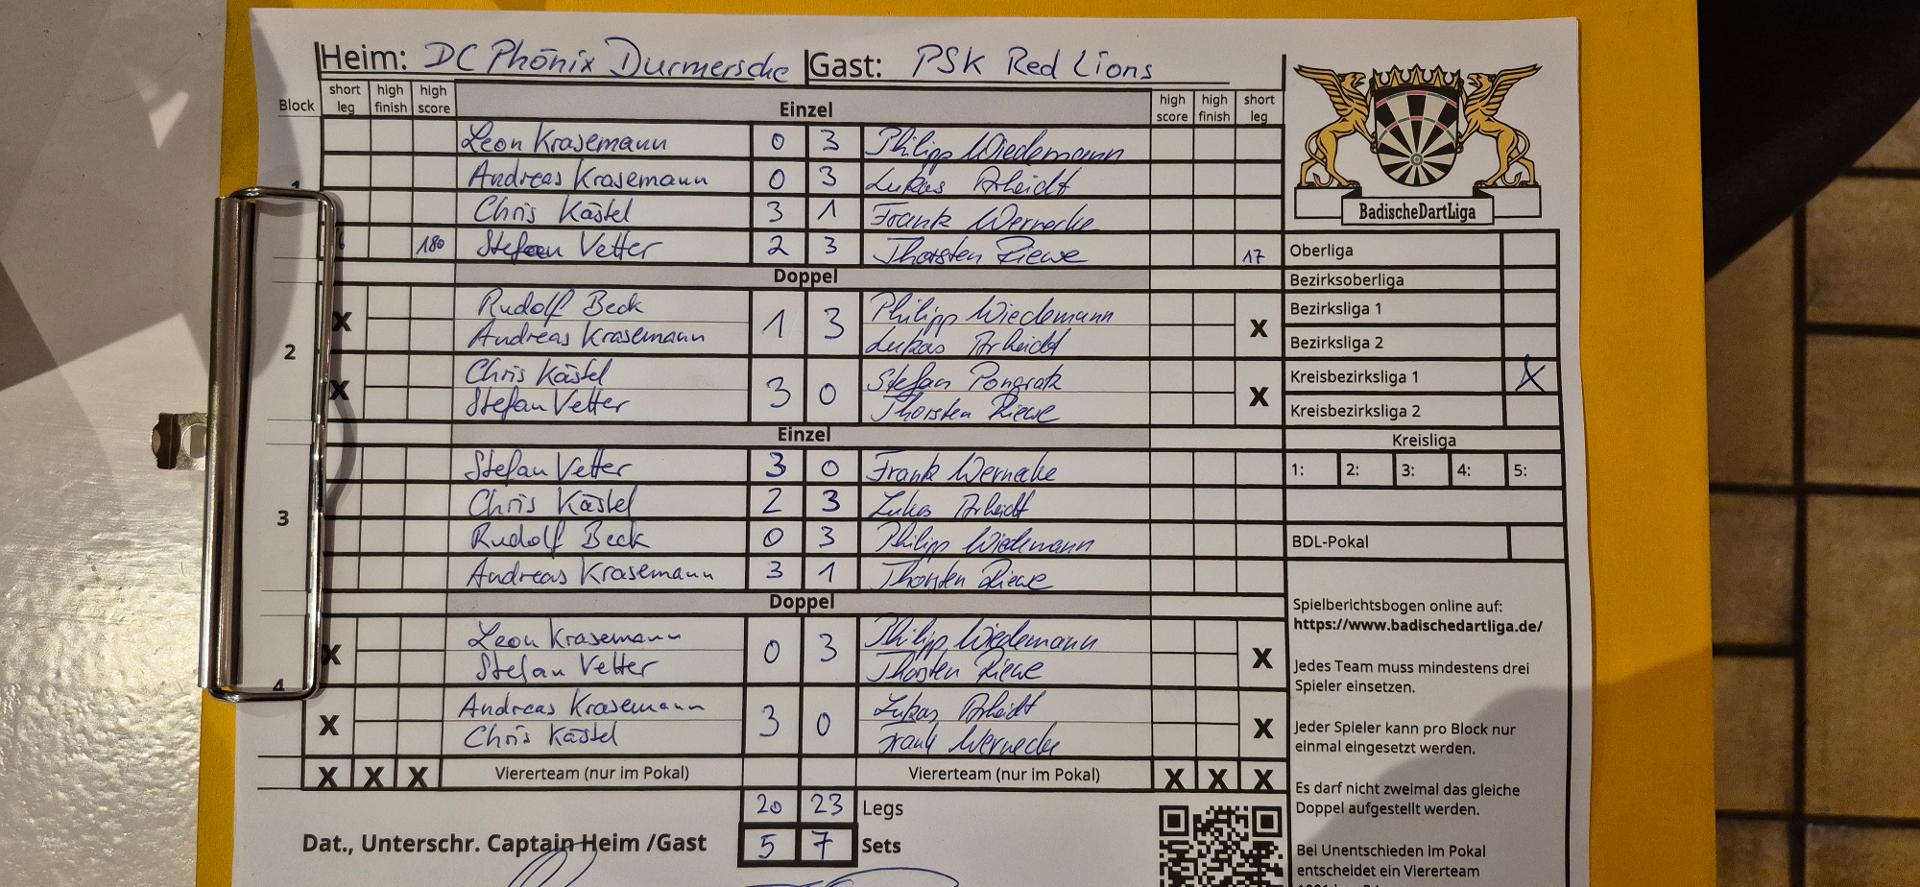 Heim: DC Phönix Durmersche Gast: PSK Red Lions
Block short leg high finish high score Einzel high score high finish short leg
Leon Krasemann 0 3 Philipp Wiedemann
1 Andreas Krasemann 0 3 Lukas Arheidt
Chris Kästel 3 1 Frank Wernecke
180 Stefan Vetter 2 3 Thorsten Riewe 17
Doppel
2
X Rudolf Beck 1 3 Philipp Wiedemann X
Andreas Krasemann Lukas Arheidt
X Chris Kästel 3 0 Stefan Pongratz X
Stefan Vetter Thorsten Riewe
Einzel
3
Stefan Vetter 3 0 Frank Wernecke
Chris Kästel 2 3 Lukas Arheidt
Rudolf Beck 0 3 Philipp Wiedemann
Andreas Krasemann 3 1 Thorsten Riewe
Doppel
4
X Leon Krasemann 0 3 Philipp Wiedemann X
Stefan Vetter Thorsten Riewe
X Andreas Krasemann 3 0 Lukas Arheidt X
Chris Kästel Frank Wernecke
X X X Viererteam (nur im Pokal) Viererteam (nur im Pokal) X X X
20 23 Legs
Dat., Unterschr. Captain Heim /Gast 5 7 Sets
BadischeDartLiga
Oberliga
Bezirksoberliga
Bezirksliga 1
Bezirksliga 2
Kreisbezirksliga 1 X
Kreisbezirksliga 2
Kreisliga
1: 2: 3: 4: 5:
BDL-Pokal
Spielberichtsbogen online auf:
https://www.badischedartliga.de/
Jedes Team muss mindestens drei
Spieler einsetzen.
Jeder Spieler kann pro Block nur
einmal eingesetzt werden.
Es darf nicht zweimal das gleiche
Doppel aufgestellt werden.
Bei Unentschieden im Pokal
entscheidet ein Viererteam